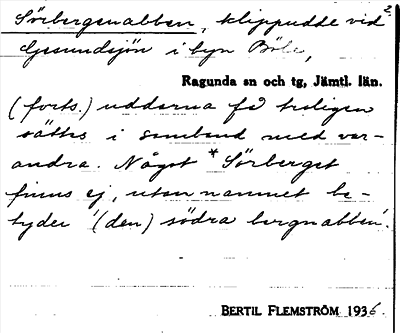 Sörbergenabben, klippudde vid 2.
Gesundsjön i byn Böle,
Ragunda sn och tg, Jämtl. län.
(forts.) uddarna få troligen
sättas i samband med var-
andra. Något *Sörberget
finns ej, utan namnet be-
tyder '(den) södra bergnabben'.
BERTIL FLEMSTRÖM 1936.